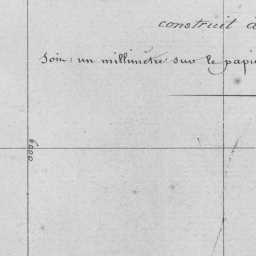 construit à
Soit: un millimètre sur le papie
6000